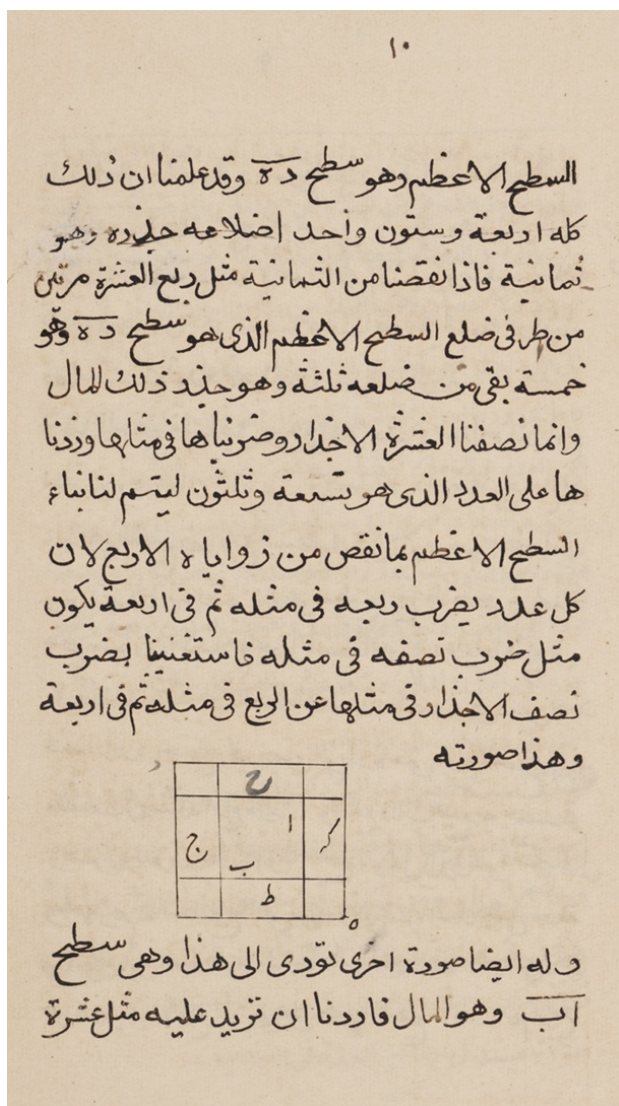 ١٠
السطح الاعظم وهو سطح ده وقد علمنا ان ذلك
كله اربعة وستون واحد اضلاعه جذره وهو
ثمانية فاذا نقصنا من الثمانية مثل ربع العشرة مرتين
من طرفى ضلع السطح الاعظم الذى هو سطح ده وهو
خمسة بقى من ضلعه ثلثة وهو جذر ذلك المال
وانما نصفنا العشرة الاجذار وضربناها فى مثلها وزدنا
ها على العدد الذى هو تسعة وثلثون ليتم لنا بناء
السطح الاعظم بما نقص من زواياه الاربع لان
كل عدد يضرب ربعه فى مثله ثم فى اربعة يكون
مثل ضرب نصفه فى مثله فاستغنينا بضرب
نصف الاجذار فى مثلها عن الربع فى مثله ثم فى اربعة
وهذا صورته
د
ح
ا
ك
ج
ب
ط
ه
وله ايضا صورة اخرى تؤدى الى هذا وهى سطح
اب وهو المال فاردنا ان نزيد عليه مثل عشرة